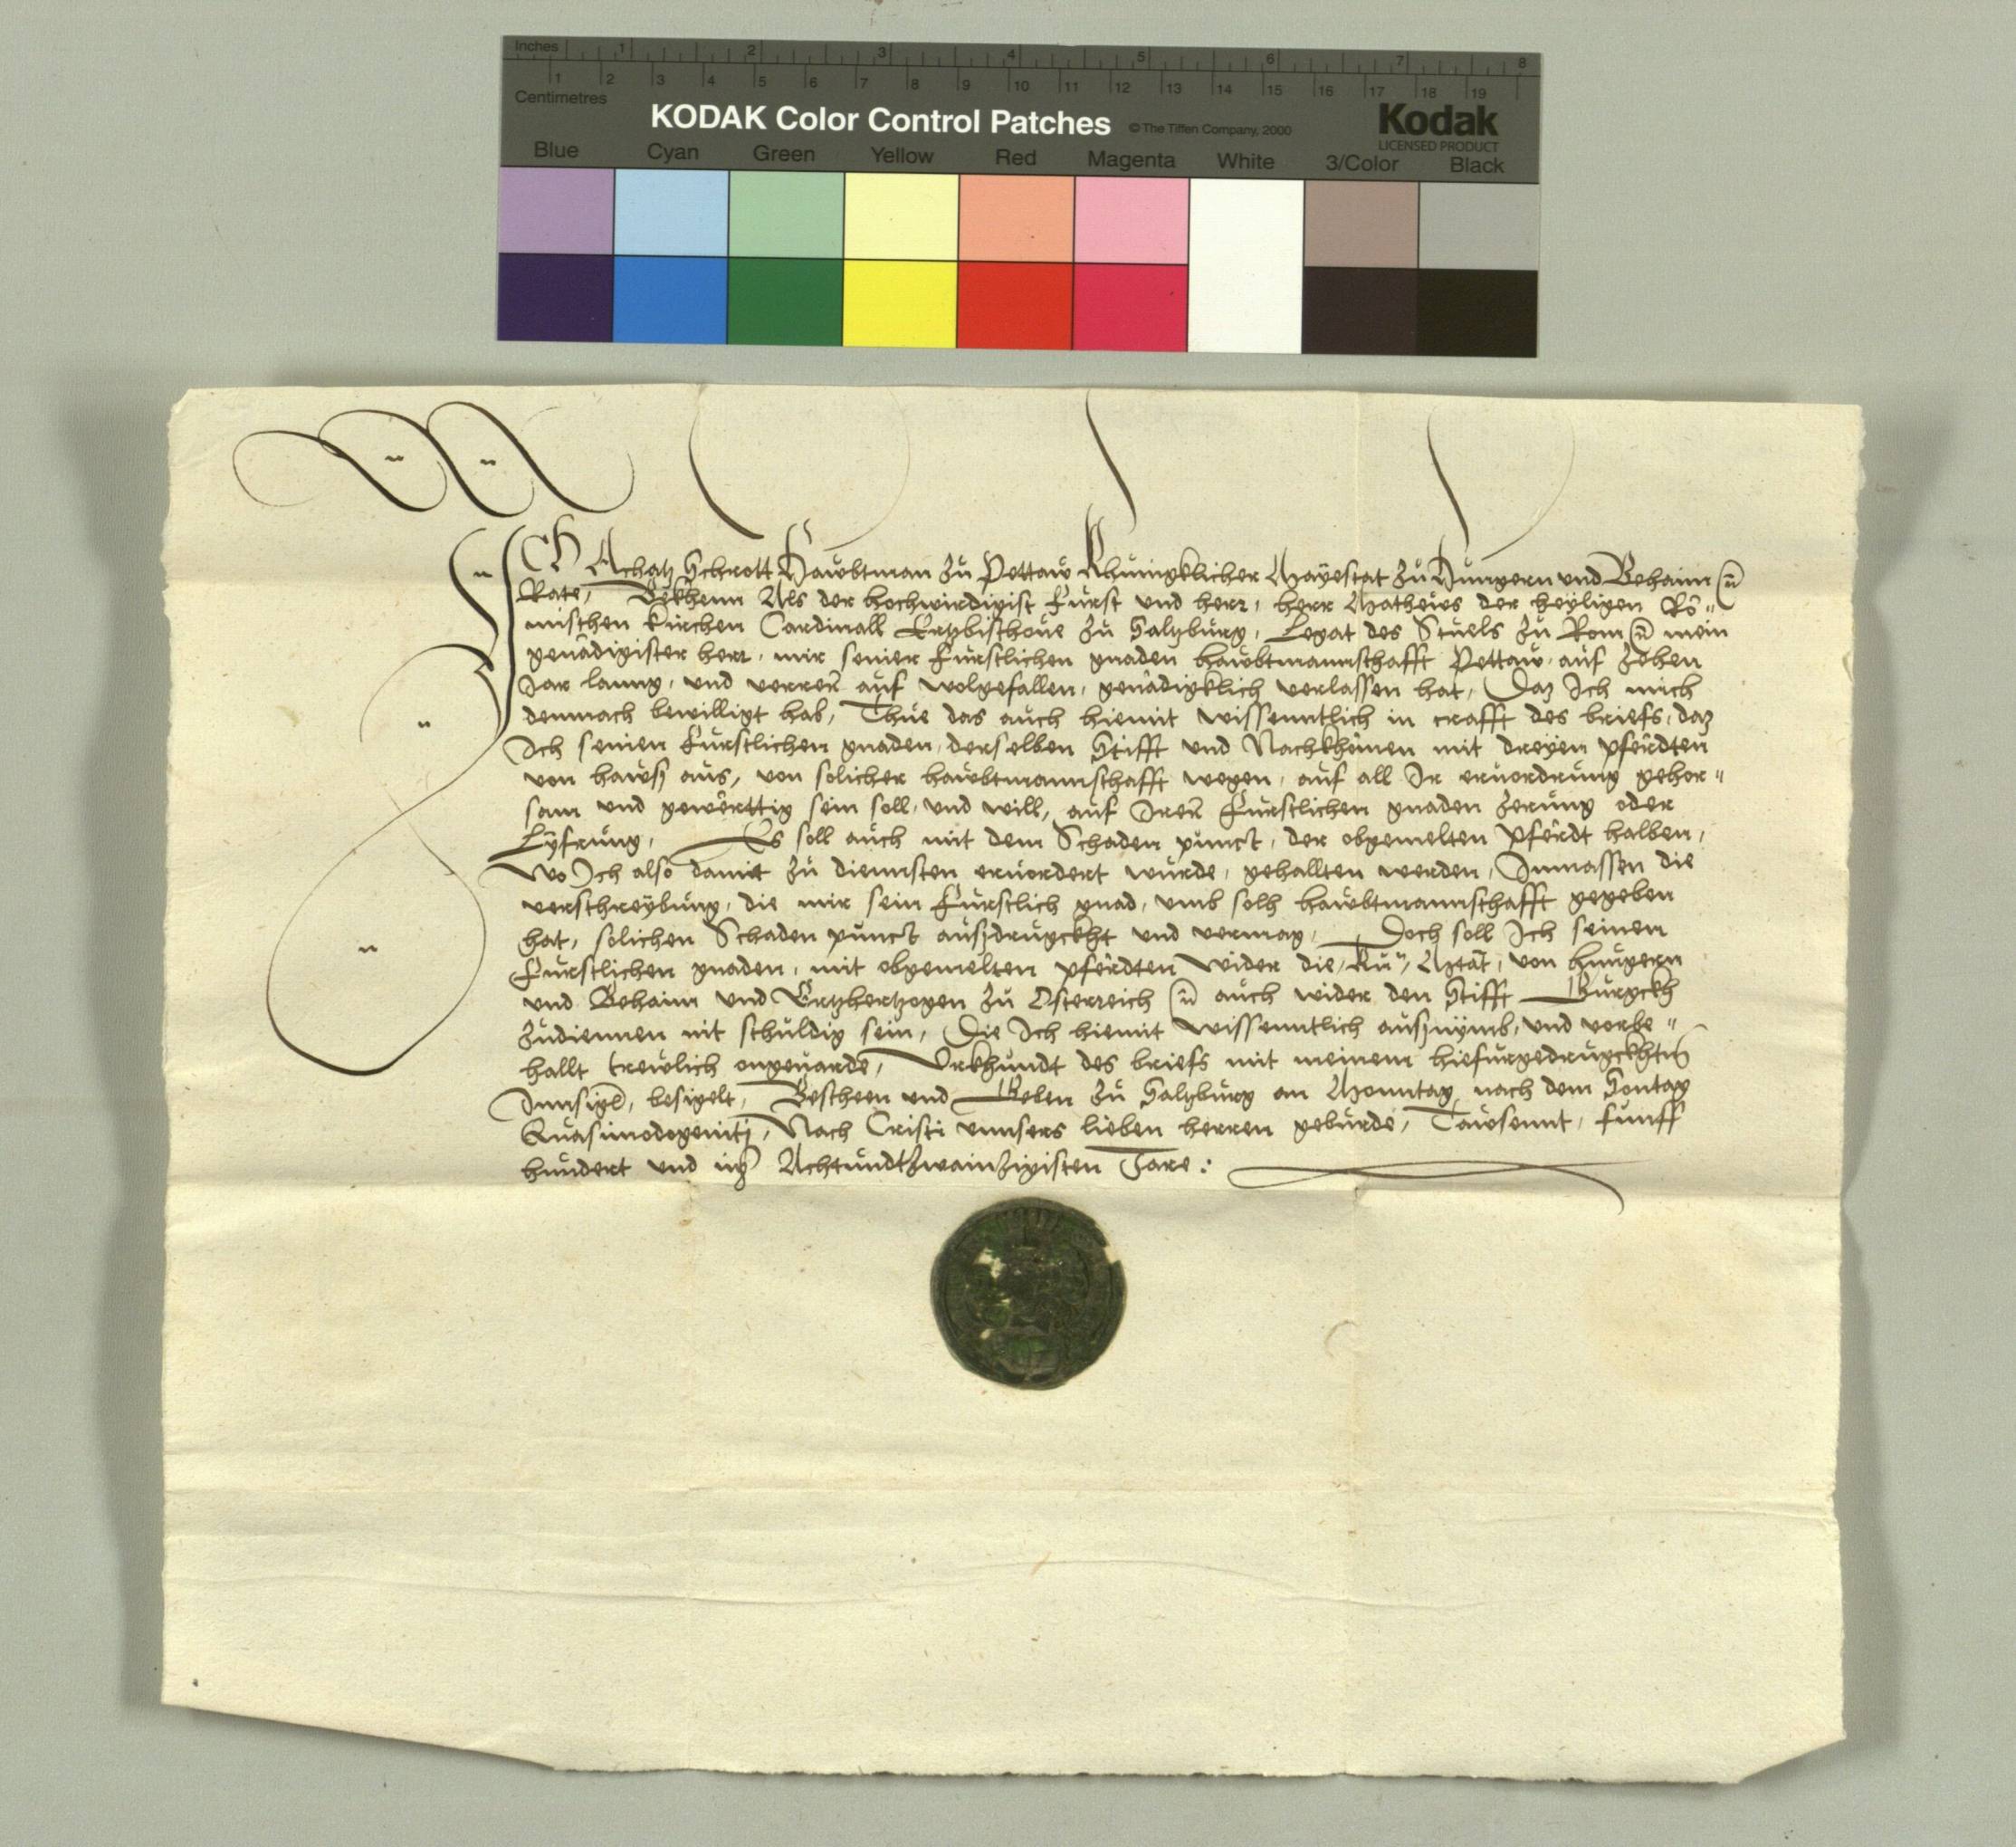 Inches 1 2 3 4 5 6 7 8
1 2 3 4 5 6 7 8 9 10 11 12 13 14 15 16 17 18 19
Centimetres
KODAK Color Control Patches © The Tiffen Company, 2000 Kodak
LICENSED PRODUCT
Blue Cyan Green Yellow Red Magenta White 3/Color Black
ICH Achatz Schrott Hawbtman zu Pettaw Khunigklicher Mayestat zu Hungern und Behaim
Rate, Bekhenn Als der hochwirdigist Furst und herr, herr Matheus der heyligen Rö"
mischen kirchen Cardinall Ertzbischoue zu Saltzburg, Legat des Stuels zu Rom mein
genadigister herr, mir seiner Furstlichen gnaden hawbtmannschafft Pettaw, auf zehen
Jar lanng, und verren auf wolgefallen, genadigklich verlassen hat, Daz Ich mich
demnach bewilligt hab, Thue das auch hiemit wissenntlich in crafft des briefs, daz
Ich seinen Furstlichen gnaden, derselben Stifft und Nachkhomen mit dreyen pferdten
von hawss aus, von solicher hawbtmannschafft wegen, auf all Ir eruordrung gehor"
sam und gewerttig sein soll, und will, auf Iren Furstlichen gnaden zerung oder
Lyfrung, Es soll auch mit dem Schaden punct, der obgemelten Pferdt halben,
Wo Ich also damit zu diennsten eruordert wurde, gehallten werden, Inmassen die
verschreybung, die mir sein Furstlich gnad, umb solh hawbtmannschafft gegeben
hat, solichen Schaden punct außdrugckht und vermag, Doch soll Ich seinen
Furstlichen gnaden, mit obgemelten pferdten wider die, Ku", Mtat, von hungern
und Behaim und Ertzhertzogen zu Osterreich auch wider den Stifft Gurgckh
zudiennen nit schuldig sein, Die Ich hiemit wissenntlich außnymb, und vorbe"
hallt treulich ongeuarde, Urkhundt des briefs mit meinem hiefurgedrugckhten
Innsigl, besigelt, Bescheen und Geben zu Saltzburg am Monntag nach dem Sontag
Quasimodogeniti, Nach Cristi unnsers lieben herren geburde, Tawsennt, funff
hundert und im Achtundtzwainzigisten Jare: